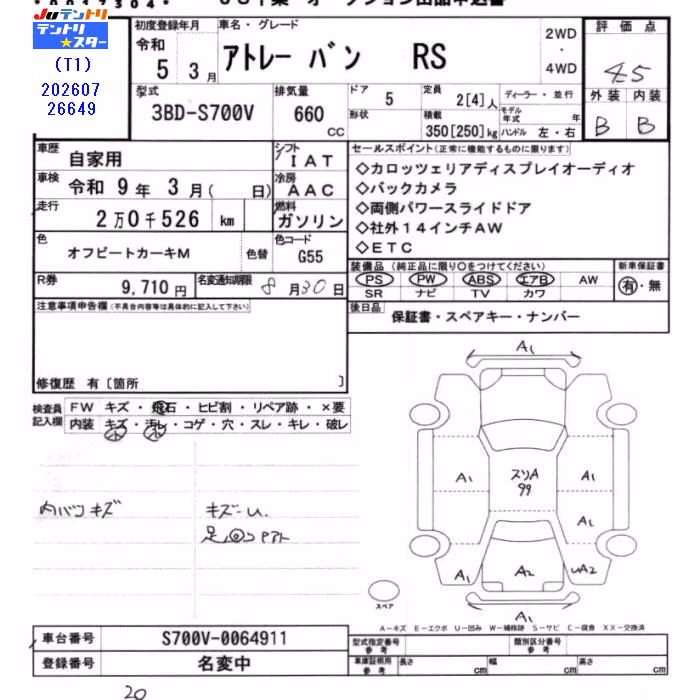 Juテントリ
テントリ★スター
(T1)
202607
26649
初度登録年月
令和
5 3月
車名・グレード
アトレー バン RS
2WD
・
4WD
評価点
4.5
外装 内装
B B
型式
3BD-S700V
排気量
660
CC
ドア
5
形状
定員
2[4]人
積載
350[250]kg
ディーラー・並行
モデル年式 年
ハンドル 左・右
車歴
自家用
シフト
IAT
車検
令和 9年 3月( 日)
冷房
AAC
走行
2万0千526 km
燃料
ガソリン
色
オフビートカーキM
色替
色コード
G55
R券
9,710円
名変通知期限
8月30日
セールスポイント(正常に機能するものに限ります)
◇カロッツェリアディスプレイオーディオ
◇バックカメラ
◇両側パワースライドドア
◇社外14インチAW
◇ETC
装備品(純正品に限り○をつけてください)
PS PW ABS エアB AW
SR ナビ TV カワ
新車保証書
有・無
後日品
保証書・スペアキー・ナンバー
注意事項申告欄(不具合内容等は具体的に記入して下さい)
修復歴 有〔箇所 〕
検査員
記入欄
FW キズ・飛石・ヒビ割・リペア跡・×要
内装 キズ・汚レ・コゲ・穴・スレ・キレ・破レ
小 小
内バンキズ
キズ-U.
A1
A1
スリA
99
A1
A1
A1
A2
UA2
A1
スペア
A-キズ E-エクボ U-凹み W-補修跡 S-サビ C-腐食 XX-交換済
車台番号
S700V-0064911
登録番号
名変中
型式指定番号
参考
類別区分番号
参考
車庫証明用
参考
長さ cm 幅 cm 高さ cm
20